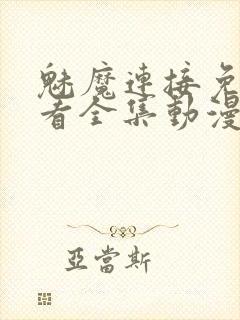 魅魔連接免
看全集動漫
亞當斯